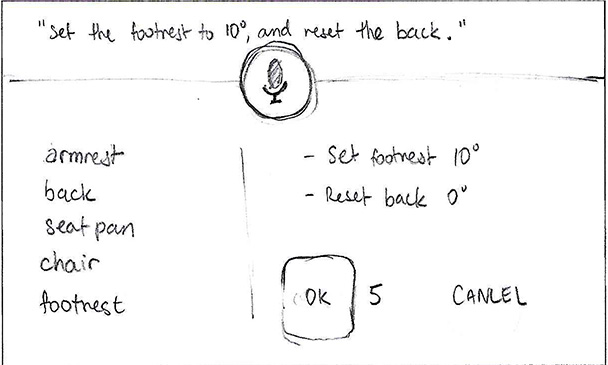 "Set the footrest to 10°, and reset the back."
armrest
back
seat pan
chair
footrest
- Set footrest 10°
- Reset back 0°
OK 5 CANCEL